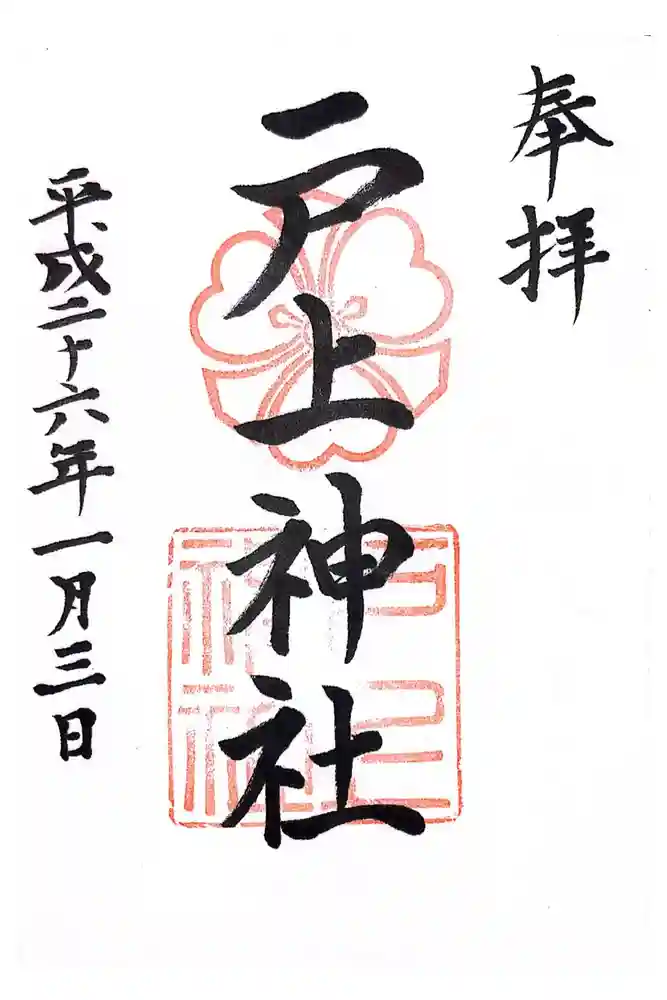 奉拝
戸上神社
戸上神社
平成二十六年一月三日